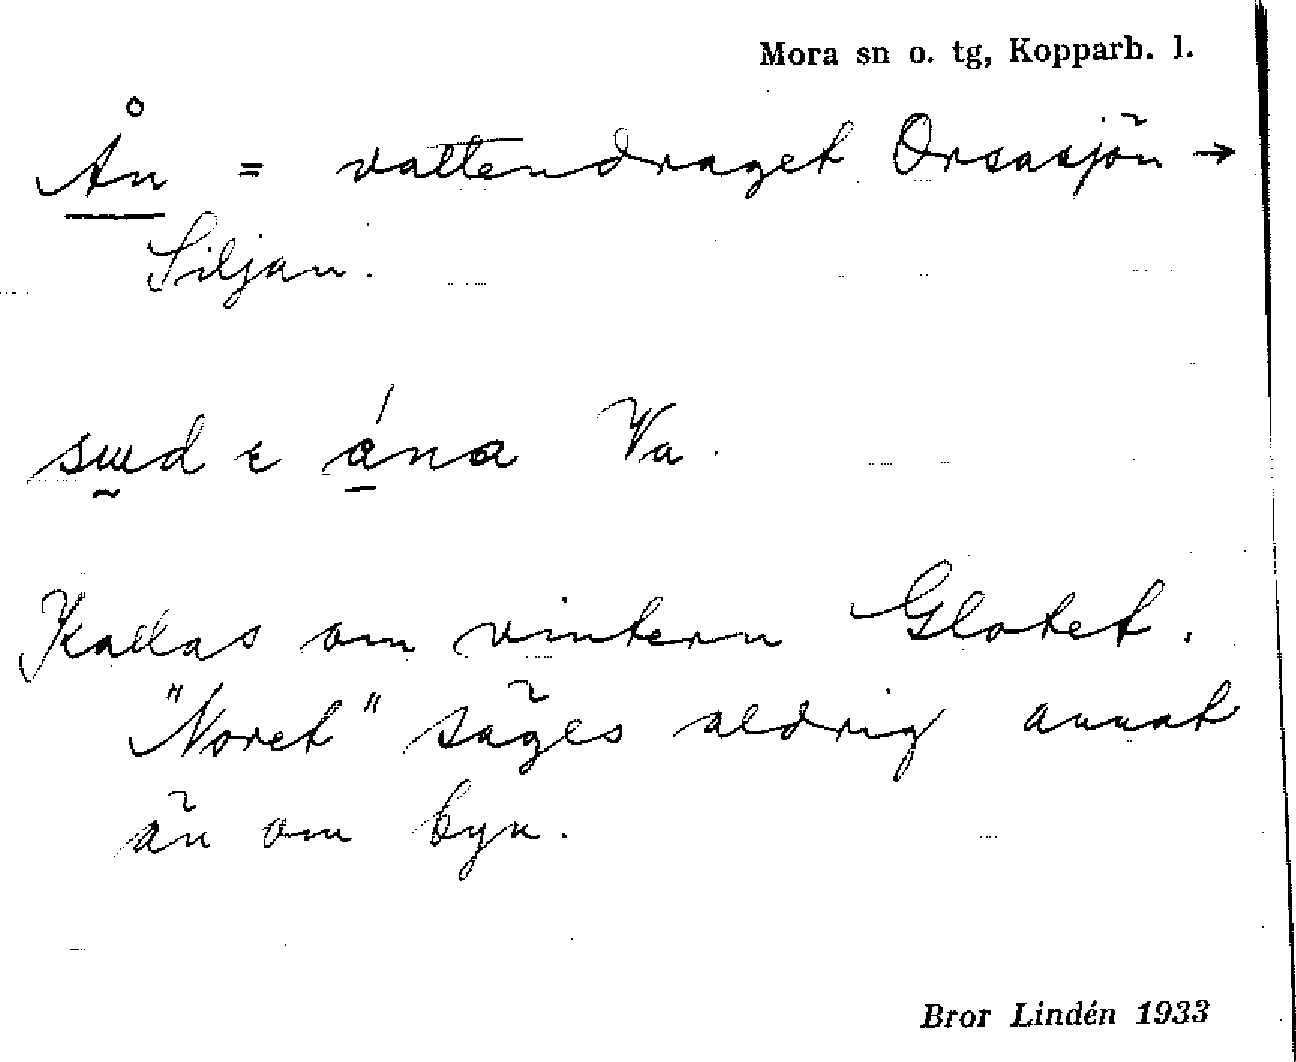 Mora sn o. tg, Kopparb. l.
Ån = vattendraget Orsasjön →
Siljan.
ána Va.
Kallas om vintern Glotet.
"Noret" säges aldrig annat
än om byn.
Bror Lindén 1933